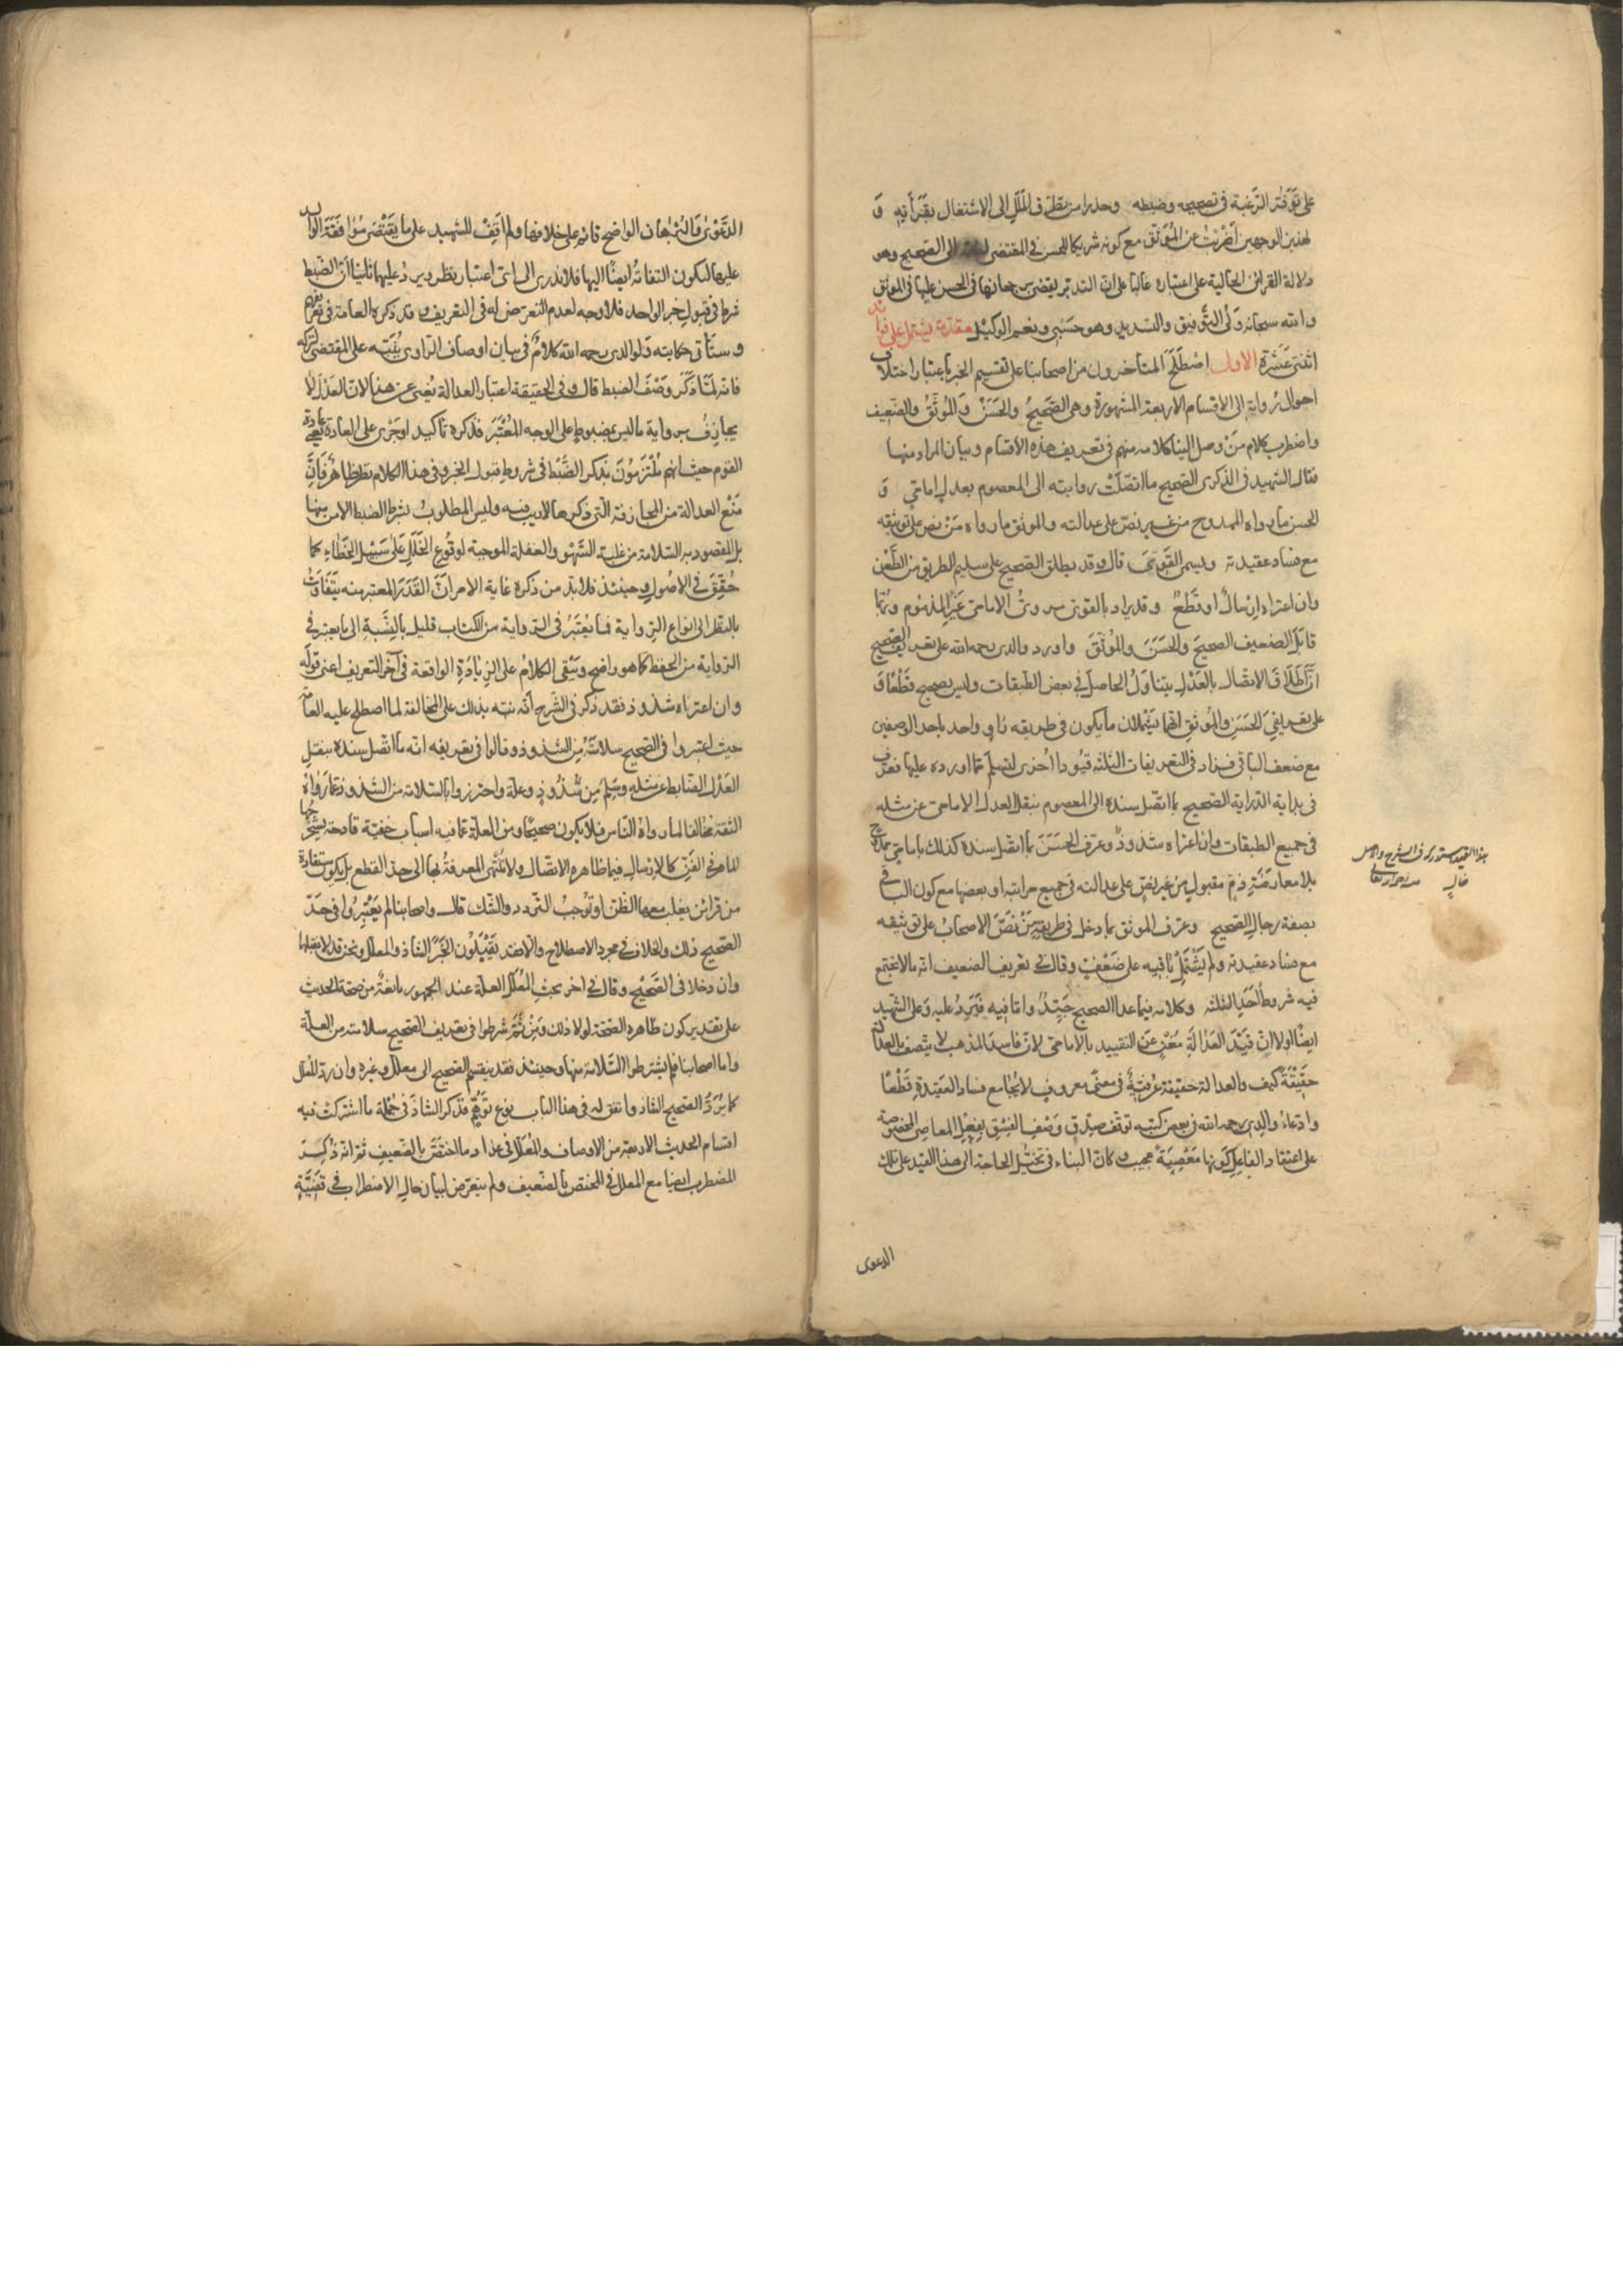 على توفر الرغبة في تصحيحه وضبطه وحذرا من تطرق الملل الى الاشتغال بقرأته و
لهذين الوجهين اضربت عن الموثق مع كونه شريكا للحسن في المقتضى الى الصحيح وهو
دلالة القرائن الحالية على اعتباره غالبا على ان التدبر يقضي برجحانها في الحسن عليها في الموثق
والله سبحانه ولى التوفيق والتسديد وهو حسبي ونعم الوكيل مقدمة يشتمل على فوائد
اثنتى عشرة الاولى اصطلح المتأخرون من اصحابنا على تقسيم الخبر باعتبار اختلاف
احوال رواية الى الاقسام الاربعة المشهورة وهي الصحيح والحسن والموثق والضعيف
واضطرب كلام من وصل الينا كلامه منهم في تعريف هذه الأقسام وبيان المراد منها
فقال الشهيد في الذكرى الصحيح ما اتصلت روايته الى المعصوم بعدل امامي و
الحسن ما رواه الممدوح من غير نص على عدالته والموثق ما رواه من نص على توثيقه
مع فساد عقيدته ويسمى القوى قال وقد يطلق الصحيح على سليم الطريق من الطعن
وان اعتراه ارسال او قطع وقد يراد بالقوى مروى الامامى غير المذموم وربما
قابل الضعيف الصحيح والحسن والموثق واورد والدى رحمه الله على تعريف الصحيح
ان اطلاق الاتصال بالعدل يتناول الحاصل في بعض الطبقات وليس بصحيح قطعا و
على تعريفي الحسن والموثق انهما يشملان ما يكون في طريقه راو واحد باحد الوصفين
مع ضعف الباقي فزاد في التعريفات الثلثة قيودا اخرى لتسلم مما اورده عليها فعرف
في بداية الدراية الصحيح بما اتصل سنده الى المعصوم بنقل العدل الامامى عن مثله
في جميع الطبقات وان اعتراه شذوذ وعرف الحسن بما اتصل سنده كذلك بامامى ممدوح
بلا معارضة ذم مقبول من غير نص على عدالته في جميع مراتبه او بعضها مع كون الباقي
بصفة رجال الصحيح وعرف الموثق بما دخل في طريقه من نص الاصحاب على توثيقه
مع فساد عقيدته ولم يشتمل باقيه على ضعف وقال في تعريف الضعيف انه ما لا يجتمع
فيه شروط احد الثلثة وكلامه فيما عدا الصحيح جيد واما فيه فيرد عليه وعلى الشهيد
ايضا اولا ان قيد العدالة مغن عن التقييد بالامامي لان فاسد المذهب لا يتصف بالعدالة
حقيقة كيف والعدالة حقيقة عرفية في معنى معروف لا يجامع فساد العقيدة قطعا
وادعاء والدى رحمه الله في بعض كتبه توقف صدق وصف الفسق بفعل المعاصي المخصوصة
على اعتقاد الفاعل كونها معصية عجيب وكان البناء في تخيل الحاجة الى هذا القيد على تلك
هذا القيد مستدرك في الشرح والاصل
خال منه رحمه الله تعالى
الدعوى
الدعوى والبرهان الواضح قائم على خلافها ولم اقف للشهيد على ما يقتضى موافقة الوالد
عليها ليكون التفاته ايضا اليها فلا ندرى الى اى اعتبار نظر ويرد عليهما ثانيا ان الضبط
شرط في قبول خبر الواحد فلا وجه لعدم التعرض له في التعريف وقد ذكره العامة في تعريفهم
وستأتى حكايته ولوالدى رحمه الله كلام في بيان اوصاف الراوى ينبه على المقتضى لتركه
فانه لما ذكر وصف الضبط قال وفي الحقيقة اعتبار العدالة يغنى عن هذا لان العدل لا
يجازف برواية ما ليس بمضبوط على الوجه المعتبر فذكره تأكيد او جرى على العادة يعنى عادة
القوم حيث انهم ملتزمون بذكر الضبط في شروط قبول الخبر وفي هذا الكلام نظر ظاهر فان
منع العدالة من المجازفة التي ذكرها لا ريب فيه وليس المطلوب بشرط الضبط الامن منها
بل المقصود به السلامة من غلبة السهو والغفلة الموجبة لوقوع الخلل على سبيل الخطاء كما
حقق في الاصول وحينئذ فلا بد من ذكره غاية الامر ان القدر المعتبر منه يتفاوت
بالنظر الى انواع الرواية فما يعتبر في الرواية من الكتاب قليل بالنسبة الى ما يعتبر في
الرواية من الحفظ كما هو واضح ويبقى الكلام على الزيادة الواقعة في آخر التعريف اعنى قوله
وان اعتراه شذوذ فقد ذكر في الشرح انه نبه بذلك على المخالفة لما اصطلح عليه العامة
حيث اعتبروا في الصحيح سلامته من الشذوذ وقالوا في تعريفه انه ما اتصل سنده بنقل
العدل الضابط عن مثله وسلم من شذوذ وعلة واحترزوا بالسلامة من الشذوذ عما رواه
الثقة مخالفا لما رواه الناس فلا يكون صحيحا ومن العلة عما فيه اسباب خفية قادحة يستخرجها
الماهر في الفن كالارسال فيما ظاهره الاتصال ولا تنتهى المعرفة بها الى حد القطع بل يكون مستفادة
من قرائن يغلب معها الظن او توجب التردد والشك قال واصحابنا لم يعتبروا في حد
الصحيح ذلك والخلاف في مجرد الاصطلاح والا فقد يقبلون الخبر الشاذ والمعلل ونحن قد لا نقبلهما
وان دخلا في الصحيح وقال في اخر بحث المعلل العلة عند الجمهور مانعة من صحة الحديث
على تقدير كون ظاهره الصحة لولا ذلك ومن ثم شرطوا في تعريف الصحيح سلامته من العلة
واما اصحابنا فلم يشترطوا السلامة منها وحينئذ فقد ينقسم الصحيح الى معلل وغيره وان رد المعلل
كما يرد الصحيح الشاذ واتفق له في هذا الباب نوع توهم فذكر الشاذ في جملة ما اشتركت فيه
اقسام الحديث الاربعة من الاوصاف والمعلل في عداد ما اختص بالضعيف ثم انه ذكر
المضطرب ايضا مع المعلل في المختص بالضعيف ولم يتعرض لبيان حال الاضطراب في قضية